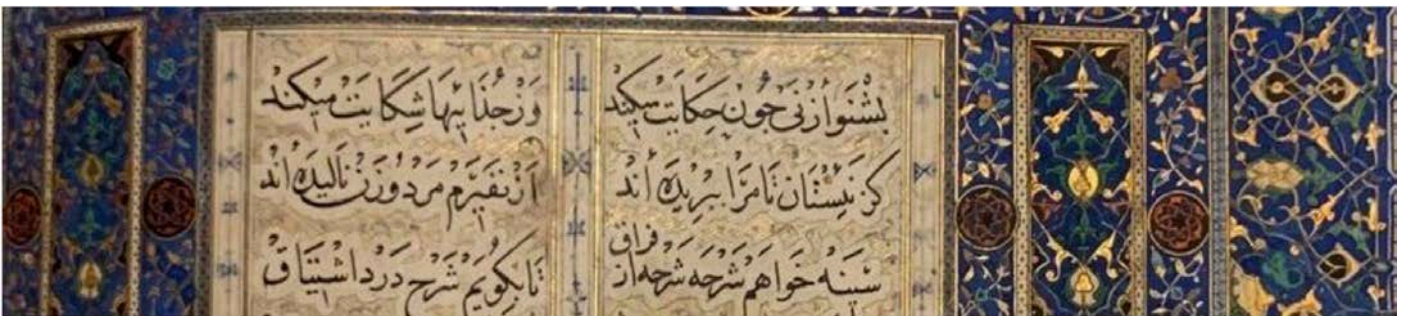 بشنو از نی جون حکایت میکند
وز جذاییها شکایت میکند
کز نیستان تا مرا ببریده اند
از نفیرم مرد و زن نالیده اند
سینه خواهم شرحه شرحه از فراق
تا بکویم شرح درد اشتیاق